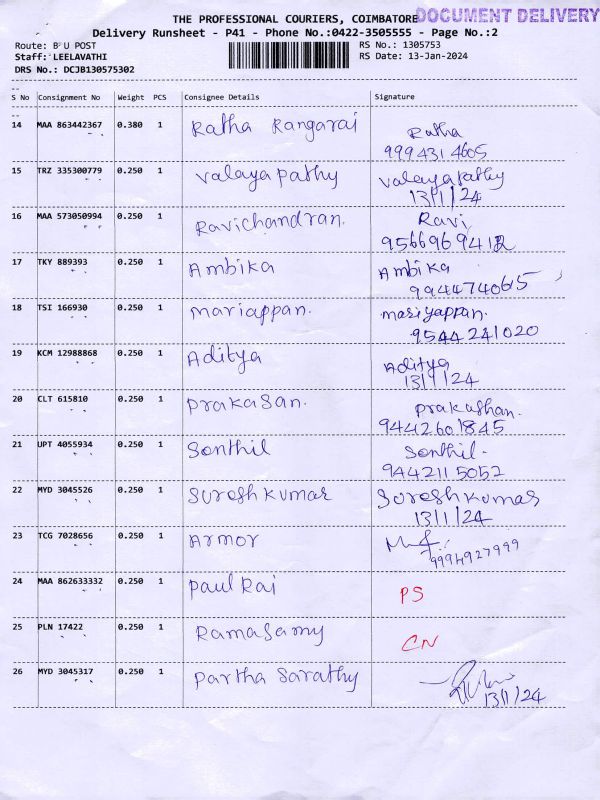 THE PROFESSIONAL COURIERS, COIMBATORE DOCUMENT DELIVERY
Delivery Runsheet - P41 - Phone No.:0422-3505555 - Page No.:2
Route: B U POST RS No.: 1305753
Staff: LEELAVATHI RS Date: 13-Jan-2024
DRS No.: DCJB130575302
S No Consignment No Weight PCS Consignee Details Signature
14 MAA 863442367 0.380 1 Ratha Rangaraj Ratha
9994314605
15 TRZ 335300779 0.250 1 Valayapathy Valayapathy
13/1/24
16 MAA 573050994 0.250 1 Ravichandran. Ravi
9566969412
17 TKY 889393 0.250 1 Ambika Ambika
9944740615
18 TSI 166930 0.250 1 mariappan. mariyappan.
9544241020
19 KCM 12988868 0.250 1 Aditya Aditya
13/1/24
20 CLT 615810 0.250 1 Prakasan. Prakashan.
9442601845
21 UPT 4055934 0.250 1 Senthil Senthil.
9442115052
22 MYD 3045526 0.250 1 Sureshkumar Sureshkumar
13/1/24
23 TCG 7028656 0.250 1 Armor
9994927999
24 MAA 862633332 0.250 1 Paulraj PS
25 PLN 17422 0.250 1 Ramasamy CN
26 MYD 3045317 0.250 1 Partha Sarathy
13/1/24